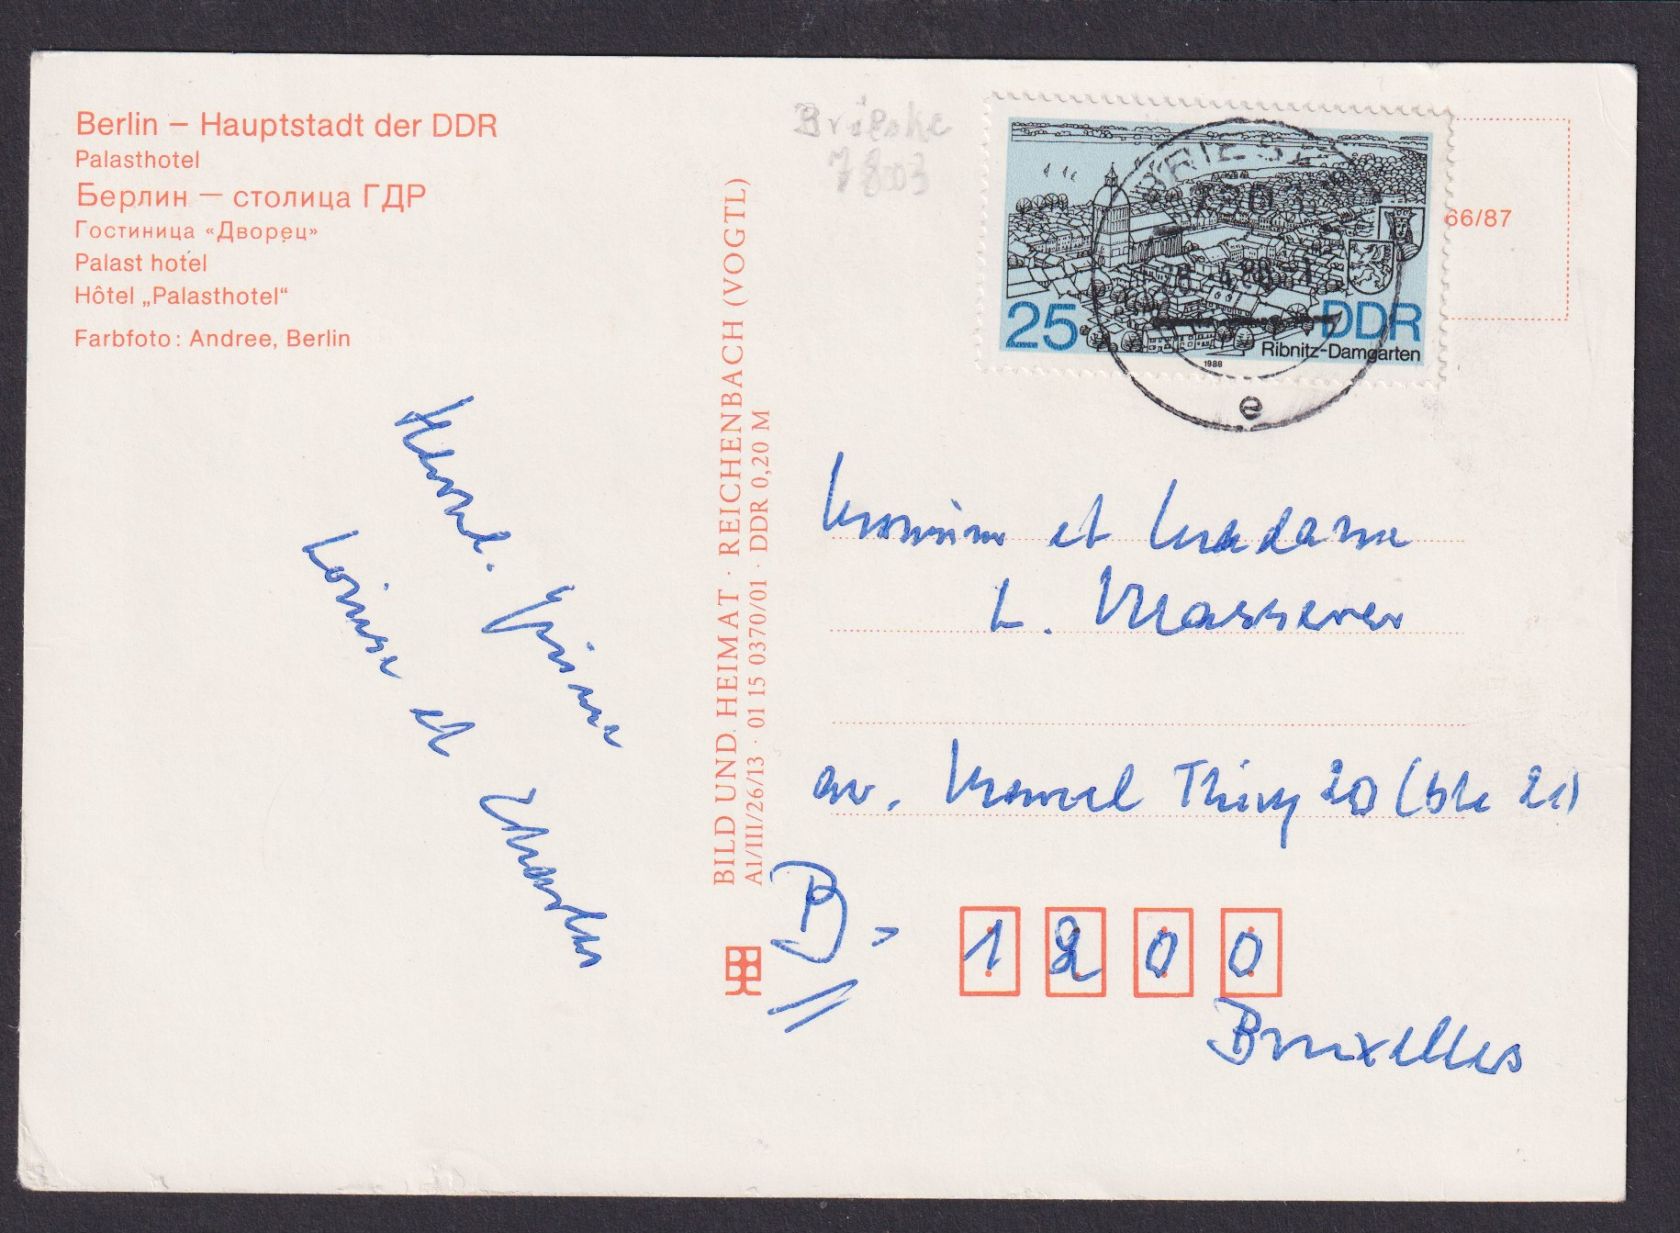 Berlin – Hauptstadt der DDR
Palasthotel
Берлин — столица ГДР
Гостиница «Дворец»
Palast hotel
Hôtel „Palasthotel“
Farbfoto: Andree, Berlin
Louise et Charles
BILD UND HEIMAT · REICHENBACH (VOGTL)
A1/III/26/13 · 01 15 0370/01 · DDR 0,20 M
Brieske
7803
66/87
25
DDR
Ribnitz-Damgarten
1988
e
et Madame
L.
av. Marcel Thiry 20 (bte 21)
B-
1200
Bruxelles